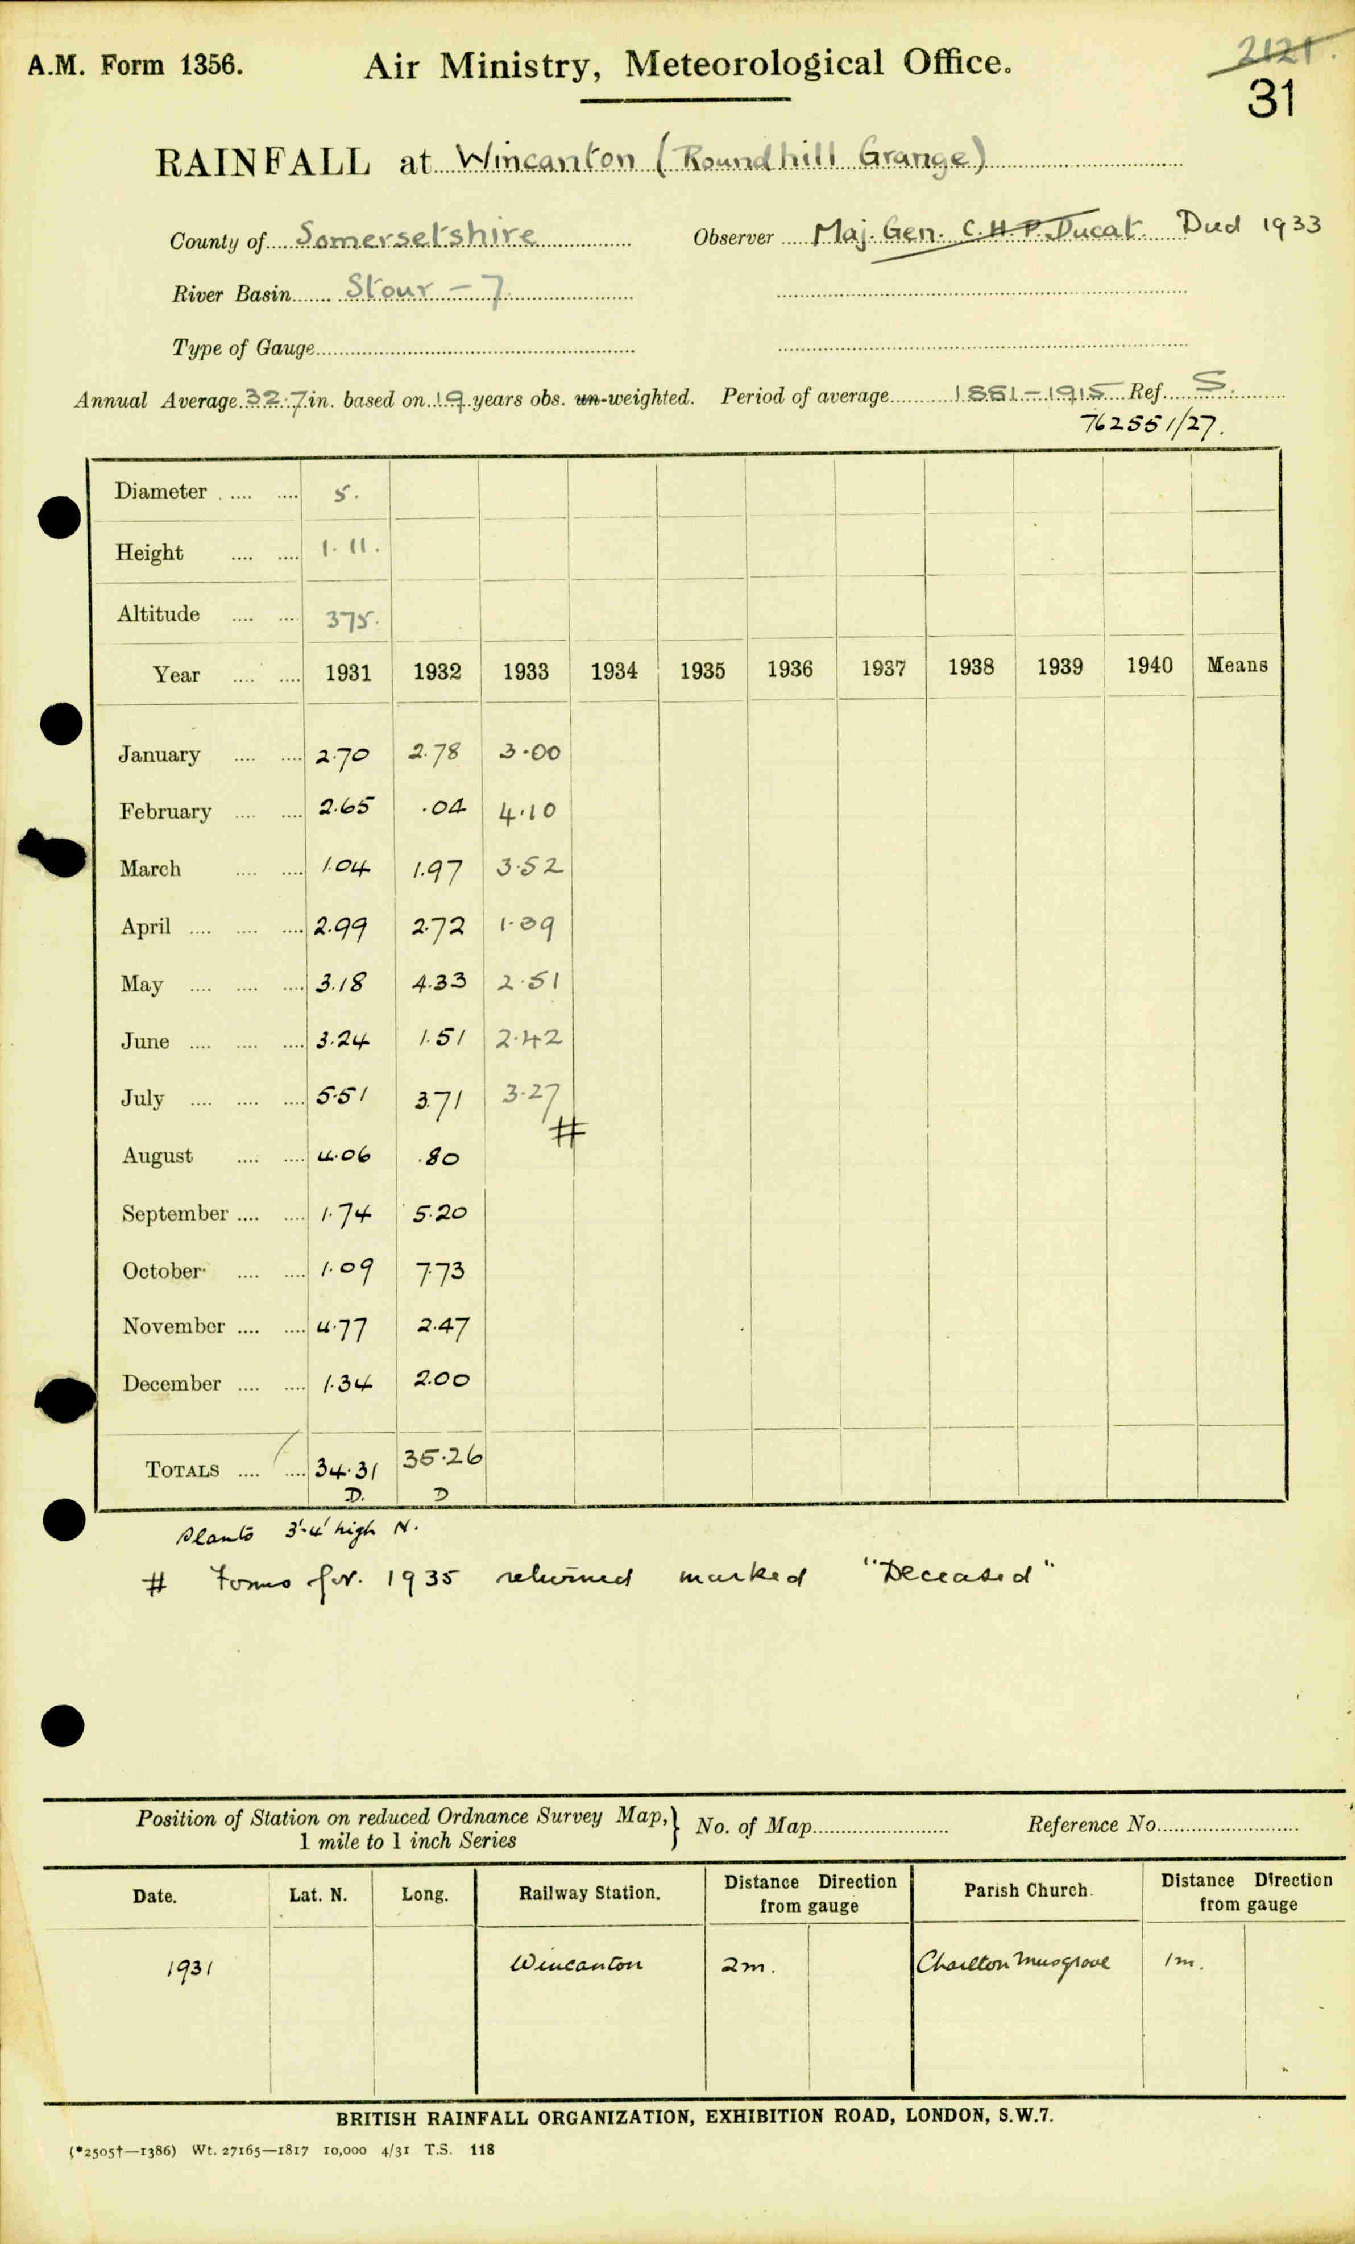 A.M. Form 1356. Air Ministry, Meteorological Office. 2121.
31
RAINFALL at Wincanton (Roundhill Grange)
County of Somersetshire Observer Maj. Gen. C.H.P. Ducat. Died 1933
River Basin Stour - 7
Type of Gauge
Annual Average 32.7 in. based on 19 years obs. un-weighted. Period of average 1881-1915 Ref. S.
762551/27.
Diameter 5.
Height 1.11.
Altitude 375.
Year 1931 1932 1933 1934 1935 1936 1937 1938 1939 1940 Means
January 2.70 2.78 3.00
February 2.65 .04 4.10
March 1.04 1.97 3.52
April 2.99 2.72 1.39
May 3.18 4.33 2.51
June 3.24 1.51 2.42
July 5.51 3.71 3.27
#
August 4.06 .80
September 1.74 5.20
October 1.09 7.73
November 4.77 2.47
December 1.34 2.00
TOTALS 34.31 35.26
D. D
Plants 3'-4' high N.
# Forms for. 1935 returned marked "Deceased"
Position of Station on reduced Ordnance Survey Map,} No. of Map Reference No.
1 mile to 1 inch Series
Date. Lat. N. Long. Railway Station. Distance Direction from gauge Parish Church. Distance Direction from gauge
1931 Wincanton 2m. Charlton Musgrove 1m.
BRITISH RAINFALL ORGANIZATION, EXHIBITION ROAD, LONDON, S.W.7.
(*2505†—1386) Wt. 27165—1817 10,000 4/31 T.S. 118